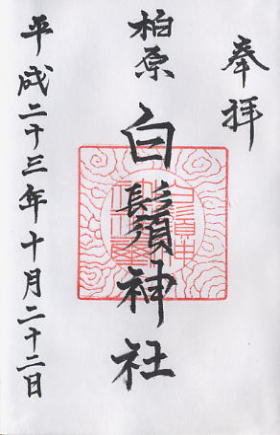 奉拝
柏原
白鬚神社
平成二十三年十月二十二日